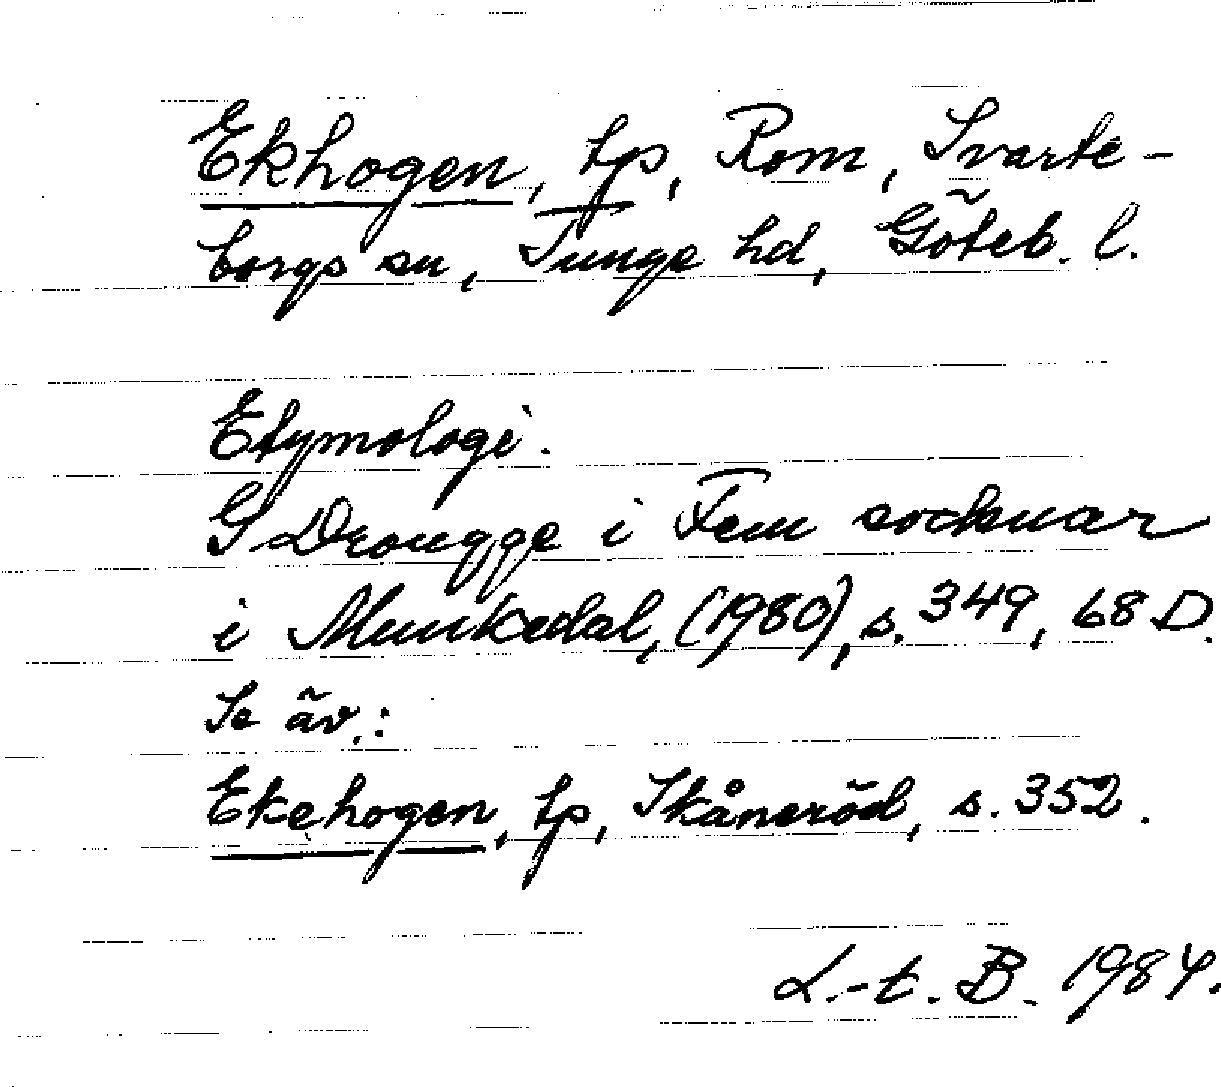 Ekhogen, tp, Rom, Svarte-
borgs sn, Tunge hd, Göteb. l.
Etymologi.
G Drougge i Fem socknar
i Munkedal, (1980), s. 349, 68 D.
Se äv.:
Ekehogen, tp, Skåneröd, s. 352.
L.-t. B. 1984.